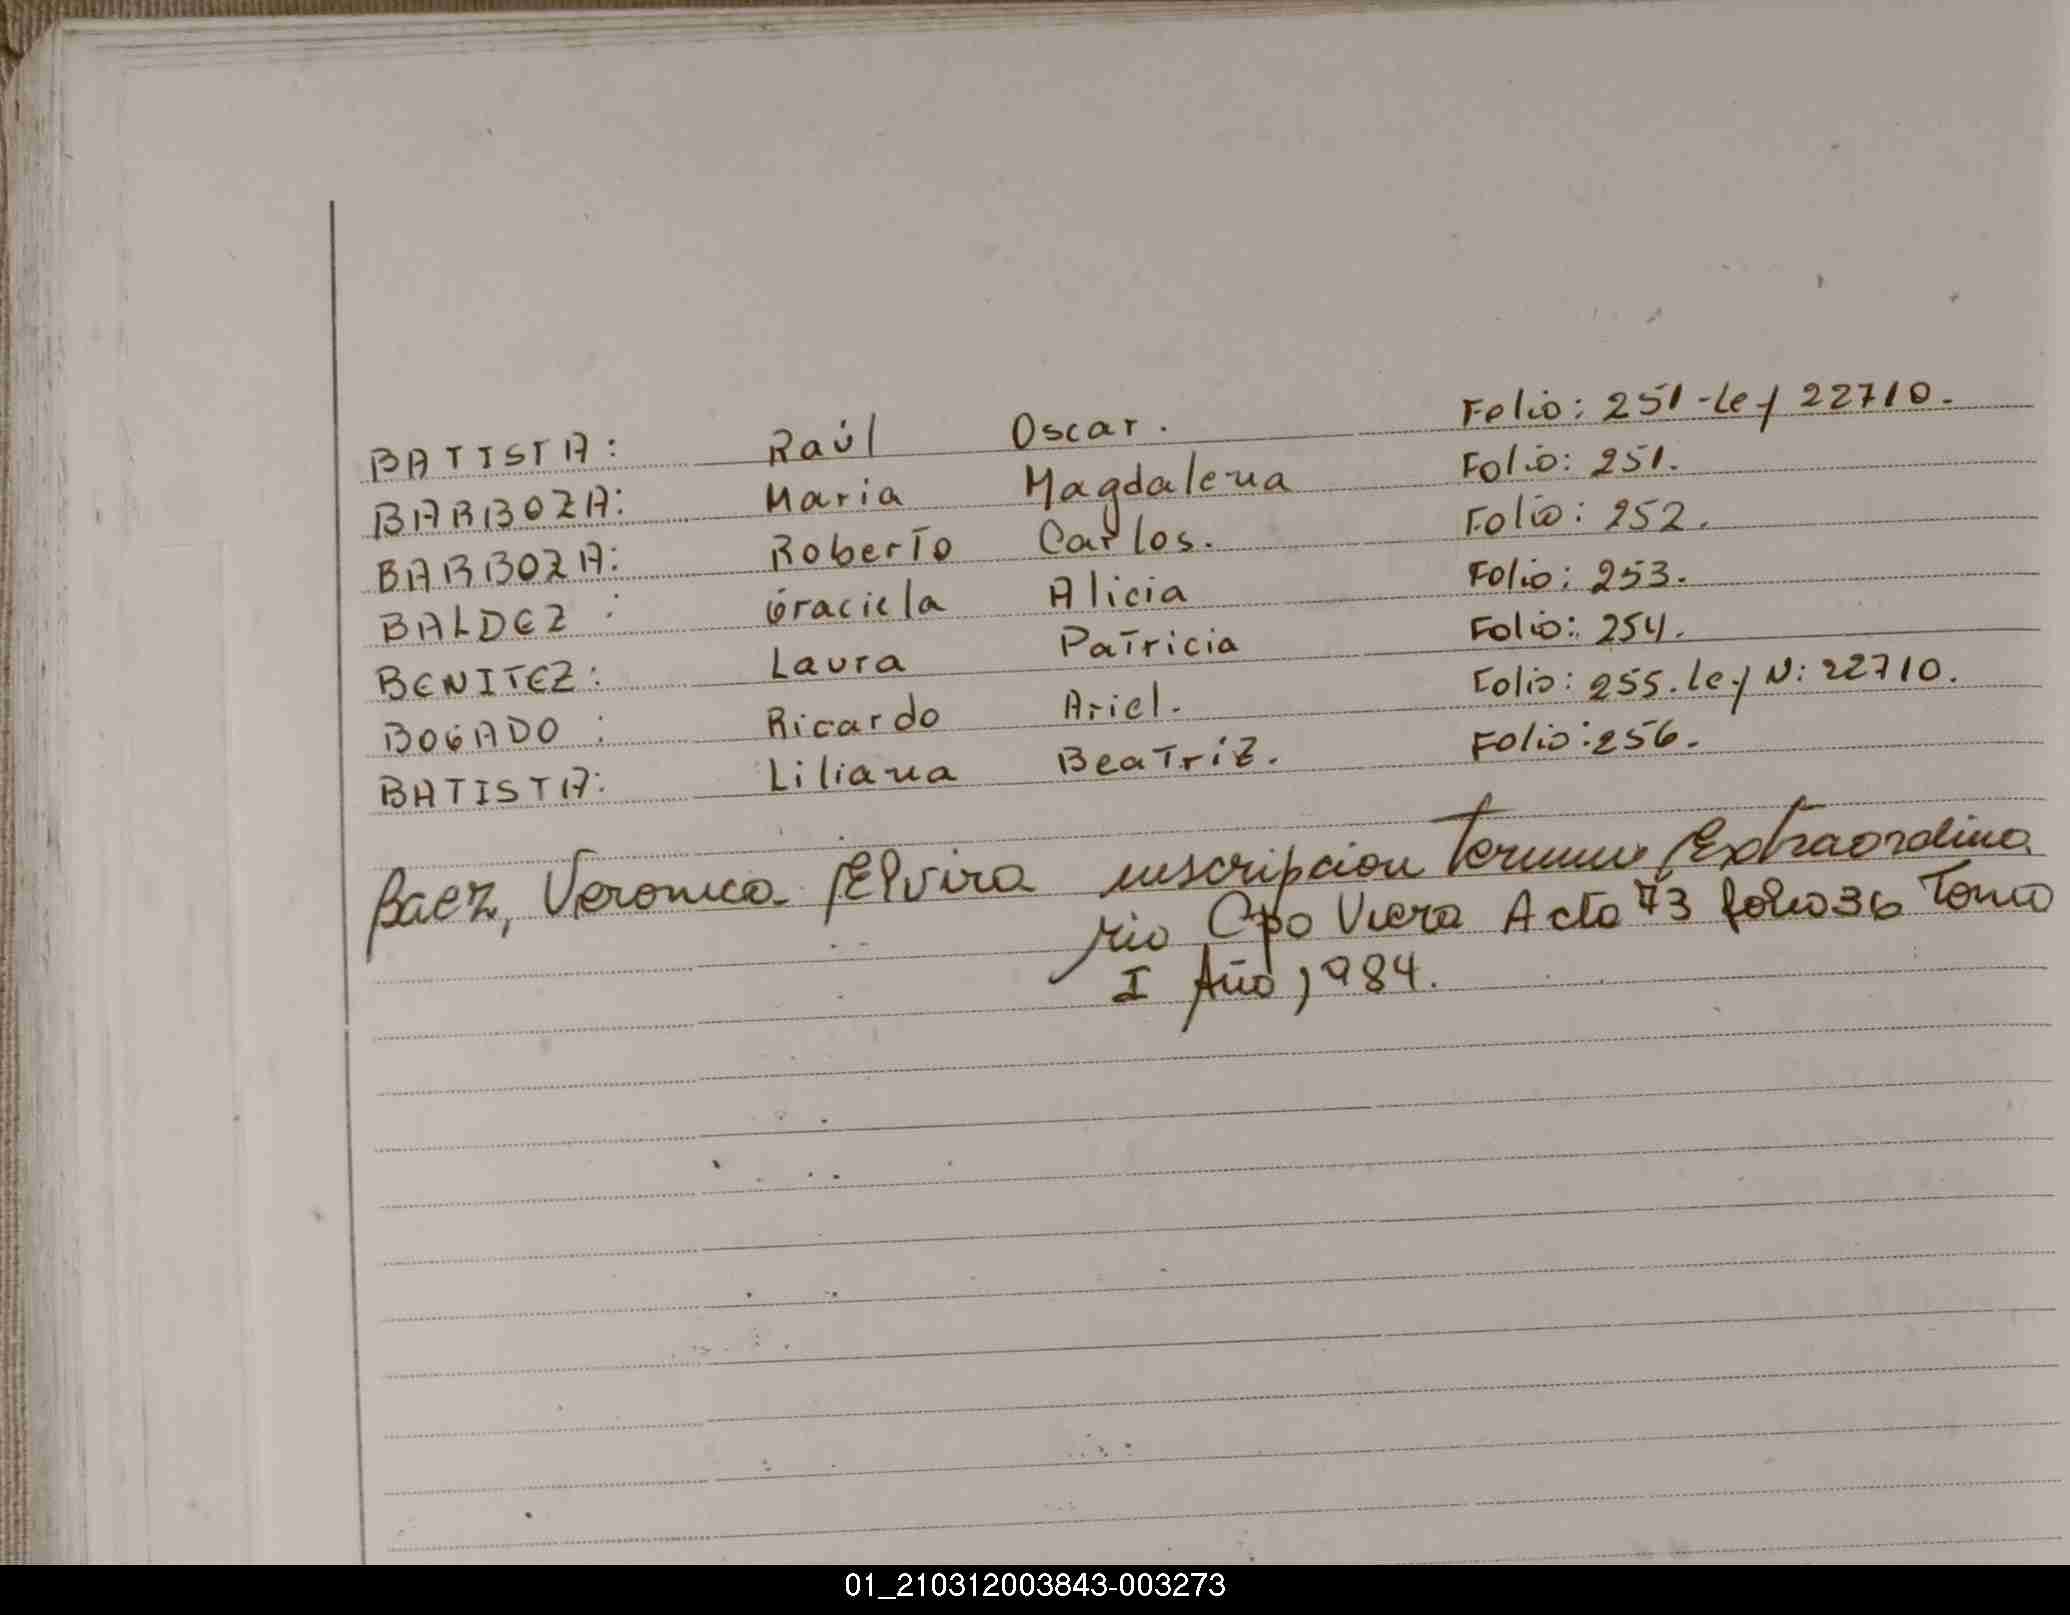 BATISTA: Raúl Oscar. Folio: 251-Ley 22710.
BARBOZA: Maria Magdalena Folio: 251.
BARBOZA: Roberto Carlos. Folio: 252.
BALDEZ : Graciela Alicia Folio: 253.
BENITEZ: Laura Patricia Folio: 254.
BOGADO : Ricardo Ariel. Folio: 255. Ley N: 22710.
BATISTA: Liliana Beatriz. Folio: 256.
Baez, Veronica Elvira inscripcion Termino Extraordina
rio Cpo Viera Acta 73 folio 36 Tomo
I Año 1984.
01_210312003843-003273